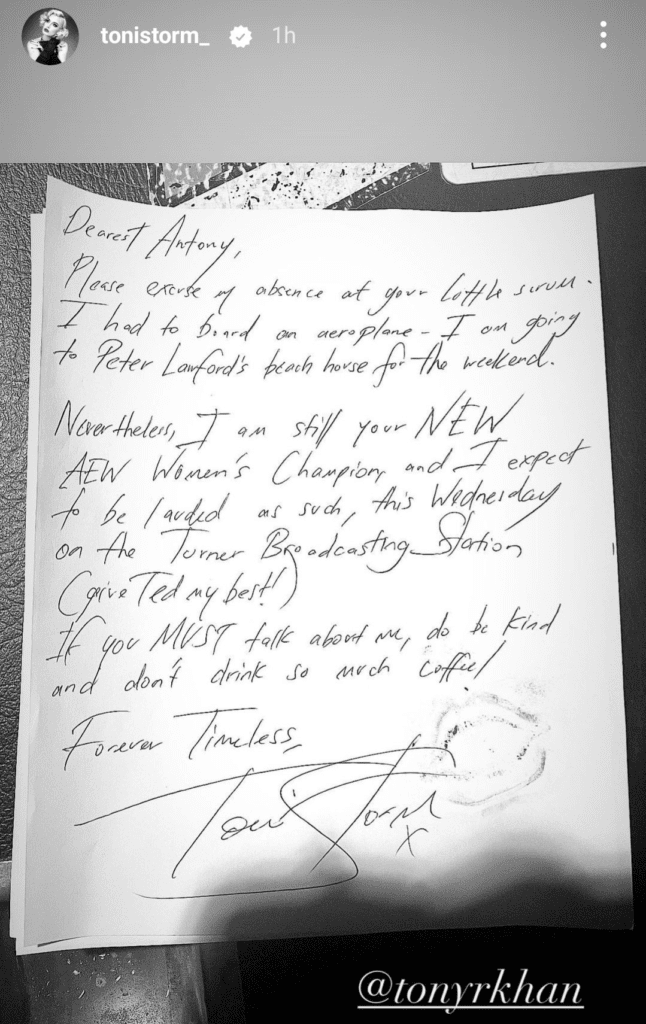 tonistorm_ 1h
Dearest Antony,
Please excuse my absence at your little scrum.
I had to board an aeroplane - I am going
to Peter Lawford's beach house for the weekend.
Nevertheless, I am still your NEW
AEW Women's Champion, and I expect
to be lauded as such, this Wednesday
on the Turner Broadcasting Station
(give Ted my best!)
If you MUST talk about me, do be kind
and don't drink so much coffee!
Forever Timeless,
Toni Storm
X
@tonyrkhan